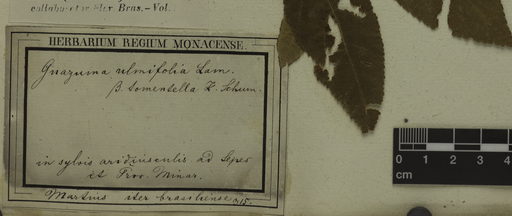 collabor tor Flor. Bras.—Vol.
HERBARIUM REGIUM MONACENSE.
Guazuma ulmifolia Lam.
β. tomentella K. Schum.
in sylvis aridiusculis ad Sepes
et Prov. Minar.
Martius iter brasiliense 915.
0 1 2 3 4
cm